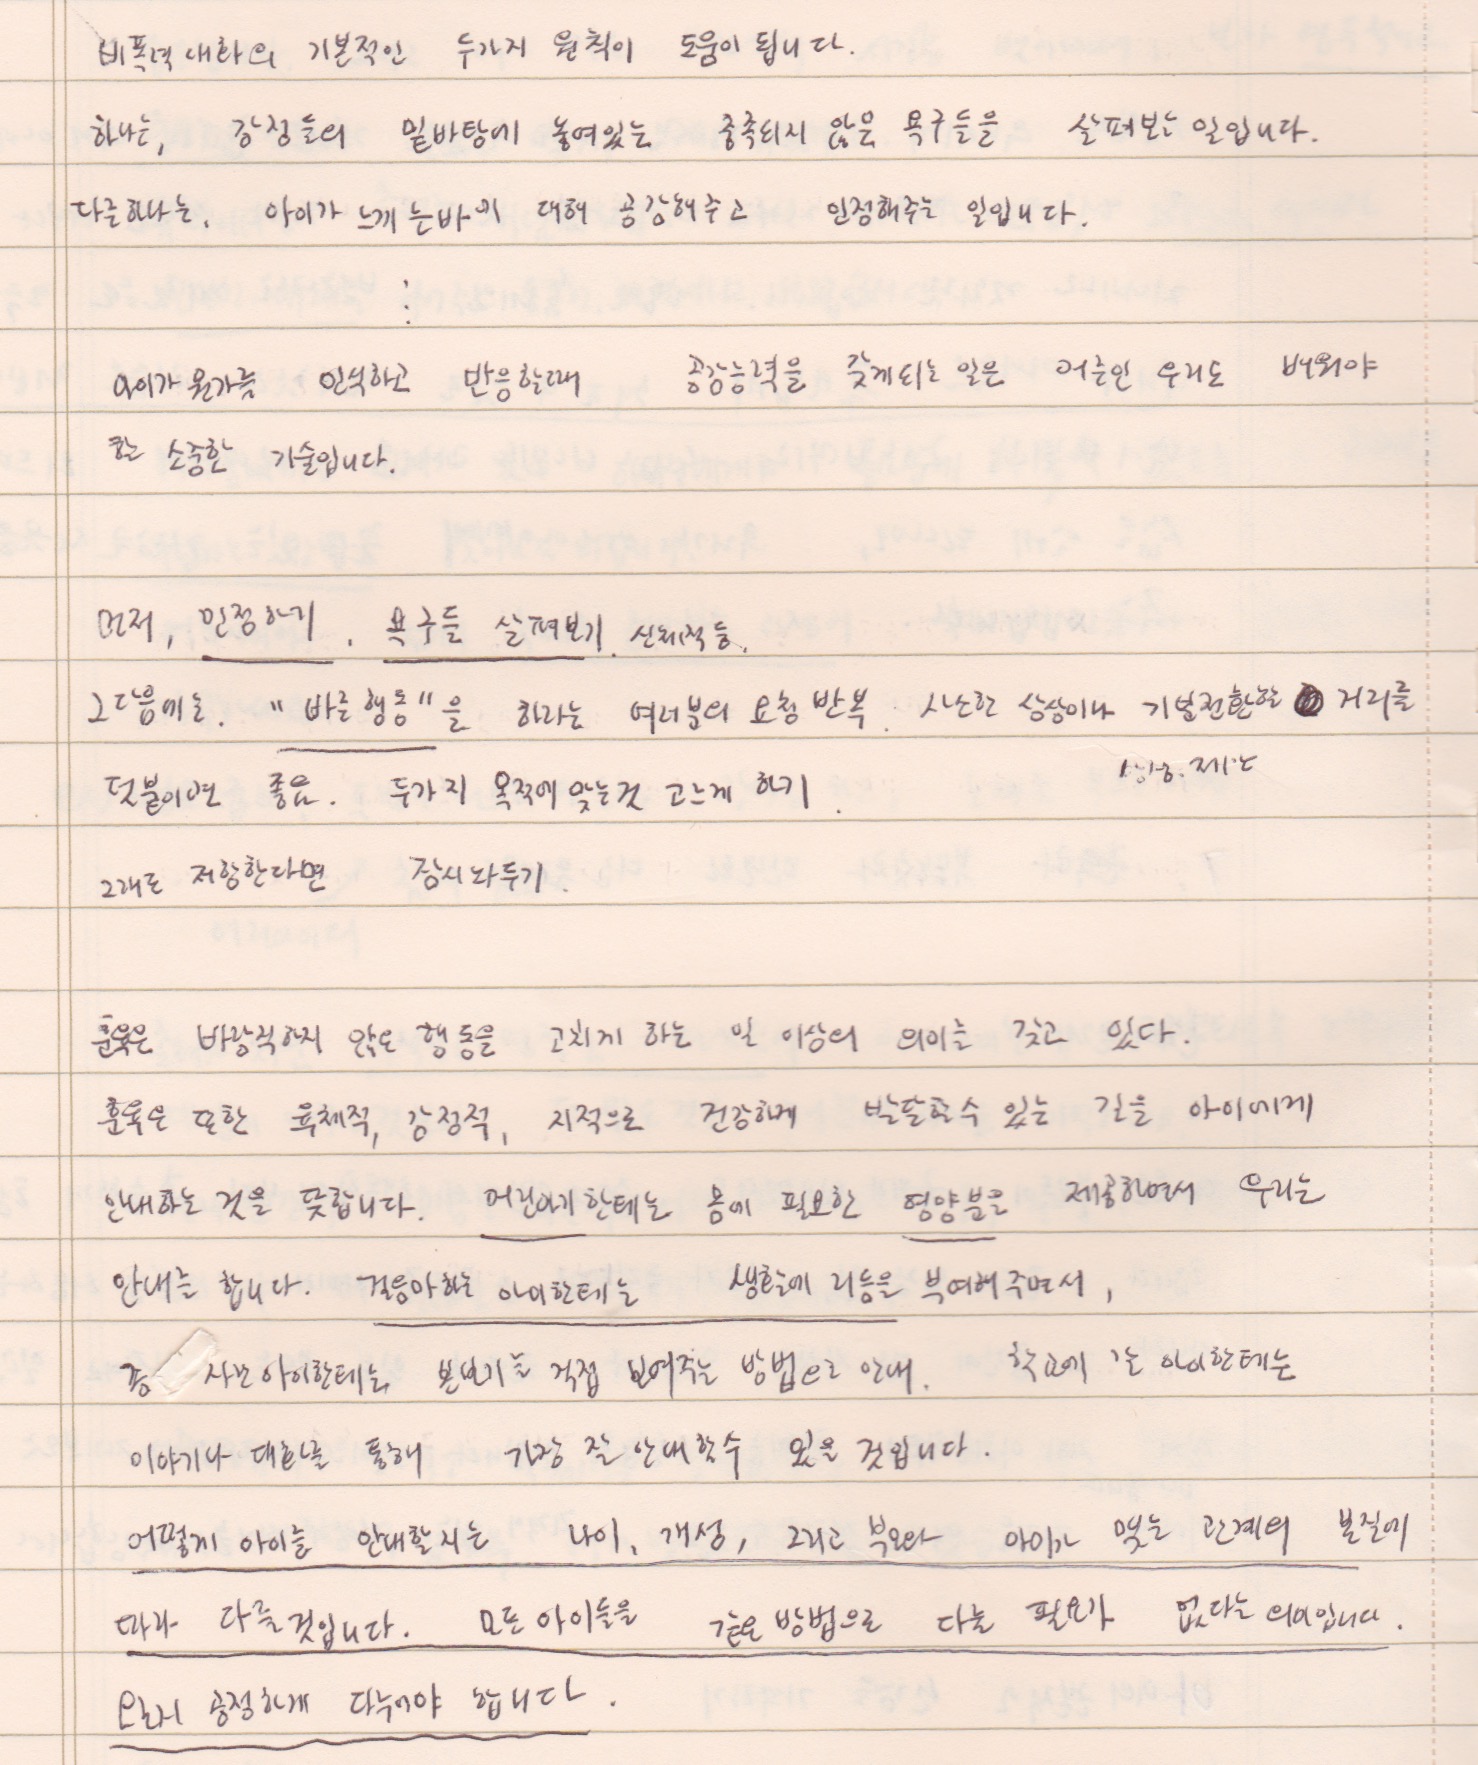 비폭력대화의 기본적인 두가지 원칙이 도움이 됩니다.
하나는, 감정들의 밑바탕에 놓여있는 충족되지 않은 욕구들을 살펴보는 일입니다.
다른하나는, 아이가 느끼는바에 대해 공감해주고 인정해주는 일입니다.
⋮
아이가 뭔가를 인식하고 반응할때 공감능력을 갖게되는 일은 어른인 우리도 배워야
할 소중한 기술입니다.
먼저, 인정하기. 욕구들 살펴보기. 신체적 등.
그다음에는. "바른행동"을 하라는 여러분의 요청 반복. 사소한 상상이나 기분전환할 거리를
상상. 제안
덧붙이면 좋음. 두가지 목적에 맞는것 고느게 하기.
그래도 저항한다면 잠시놔두기.
훈육은 바람직하지 않은 행동을 고치게 하는 일 이상의 의미를 갖고 있다.
훈육은 또한 육체적, 감정적, 지적으로 건강하게 발달할수 있는 길을 아이에게
안내하는 것을 뜻합니다. 어린아기한테는 몸에 필요한 영양분을 제공하면서 우리는
안내를 합니다. 걸음마하는 아이한테는 생활에 리듬을 부여해주면서,
좀 자란아이한테는 본보기를 직접 보여주는 방법으로 안내. 학교에 가는 아이한테는
이야기나 대화를 통해 가장 잘 안내할수 있을 것입니다.
어떻게 아이를 안내할지는 나이, 개성, 그리고 부모와 아이가 맺는 관계의 본질에
따라 다를것입니다. 모든아이들을 같은방법으로 다룰 필요가 없다는 의미입니다.
공정하게 다루어야 합니다.